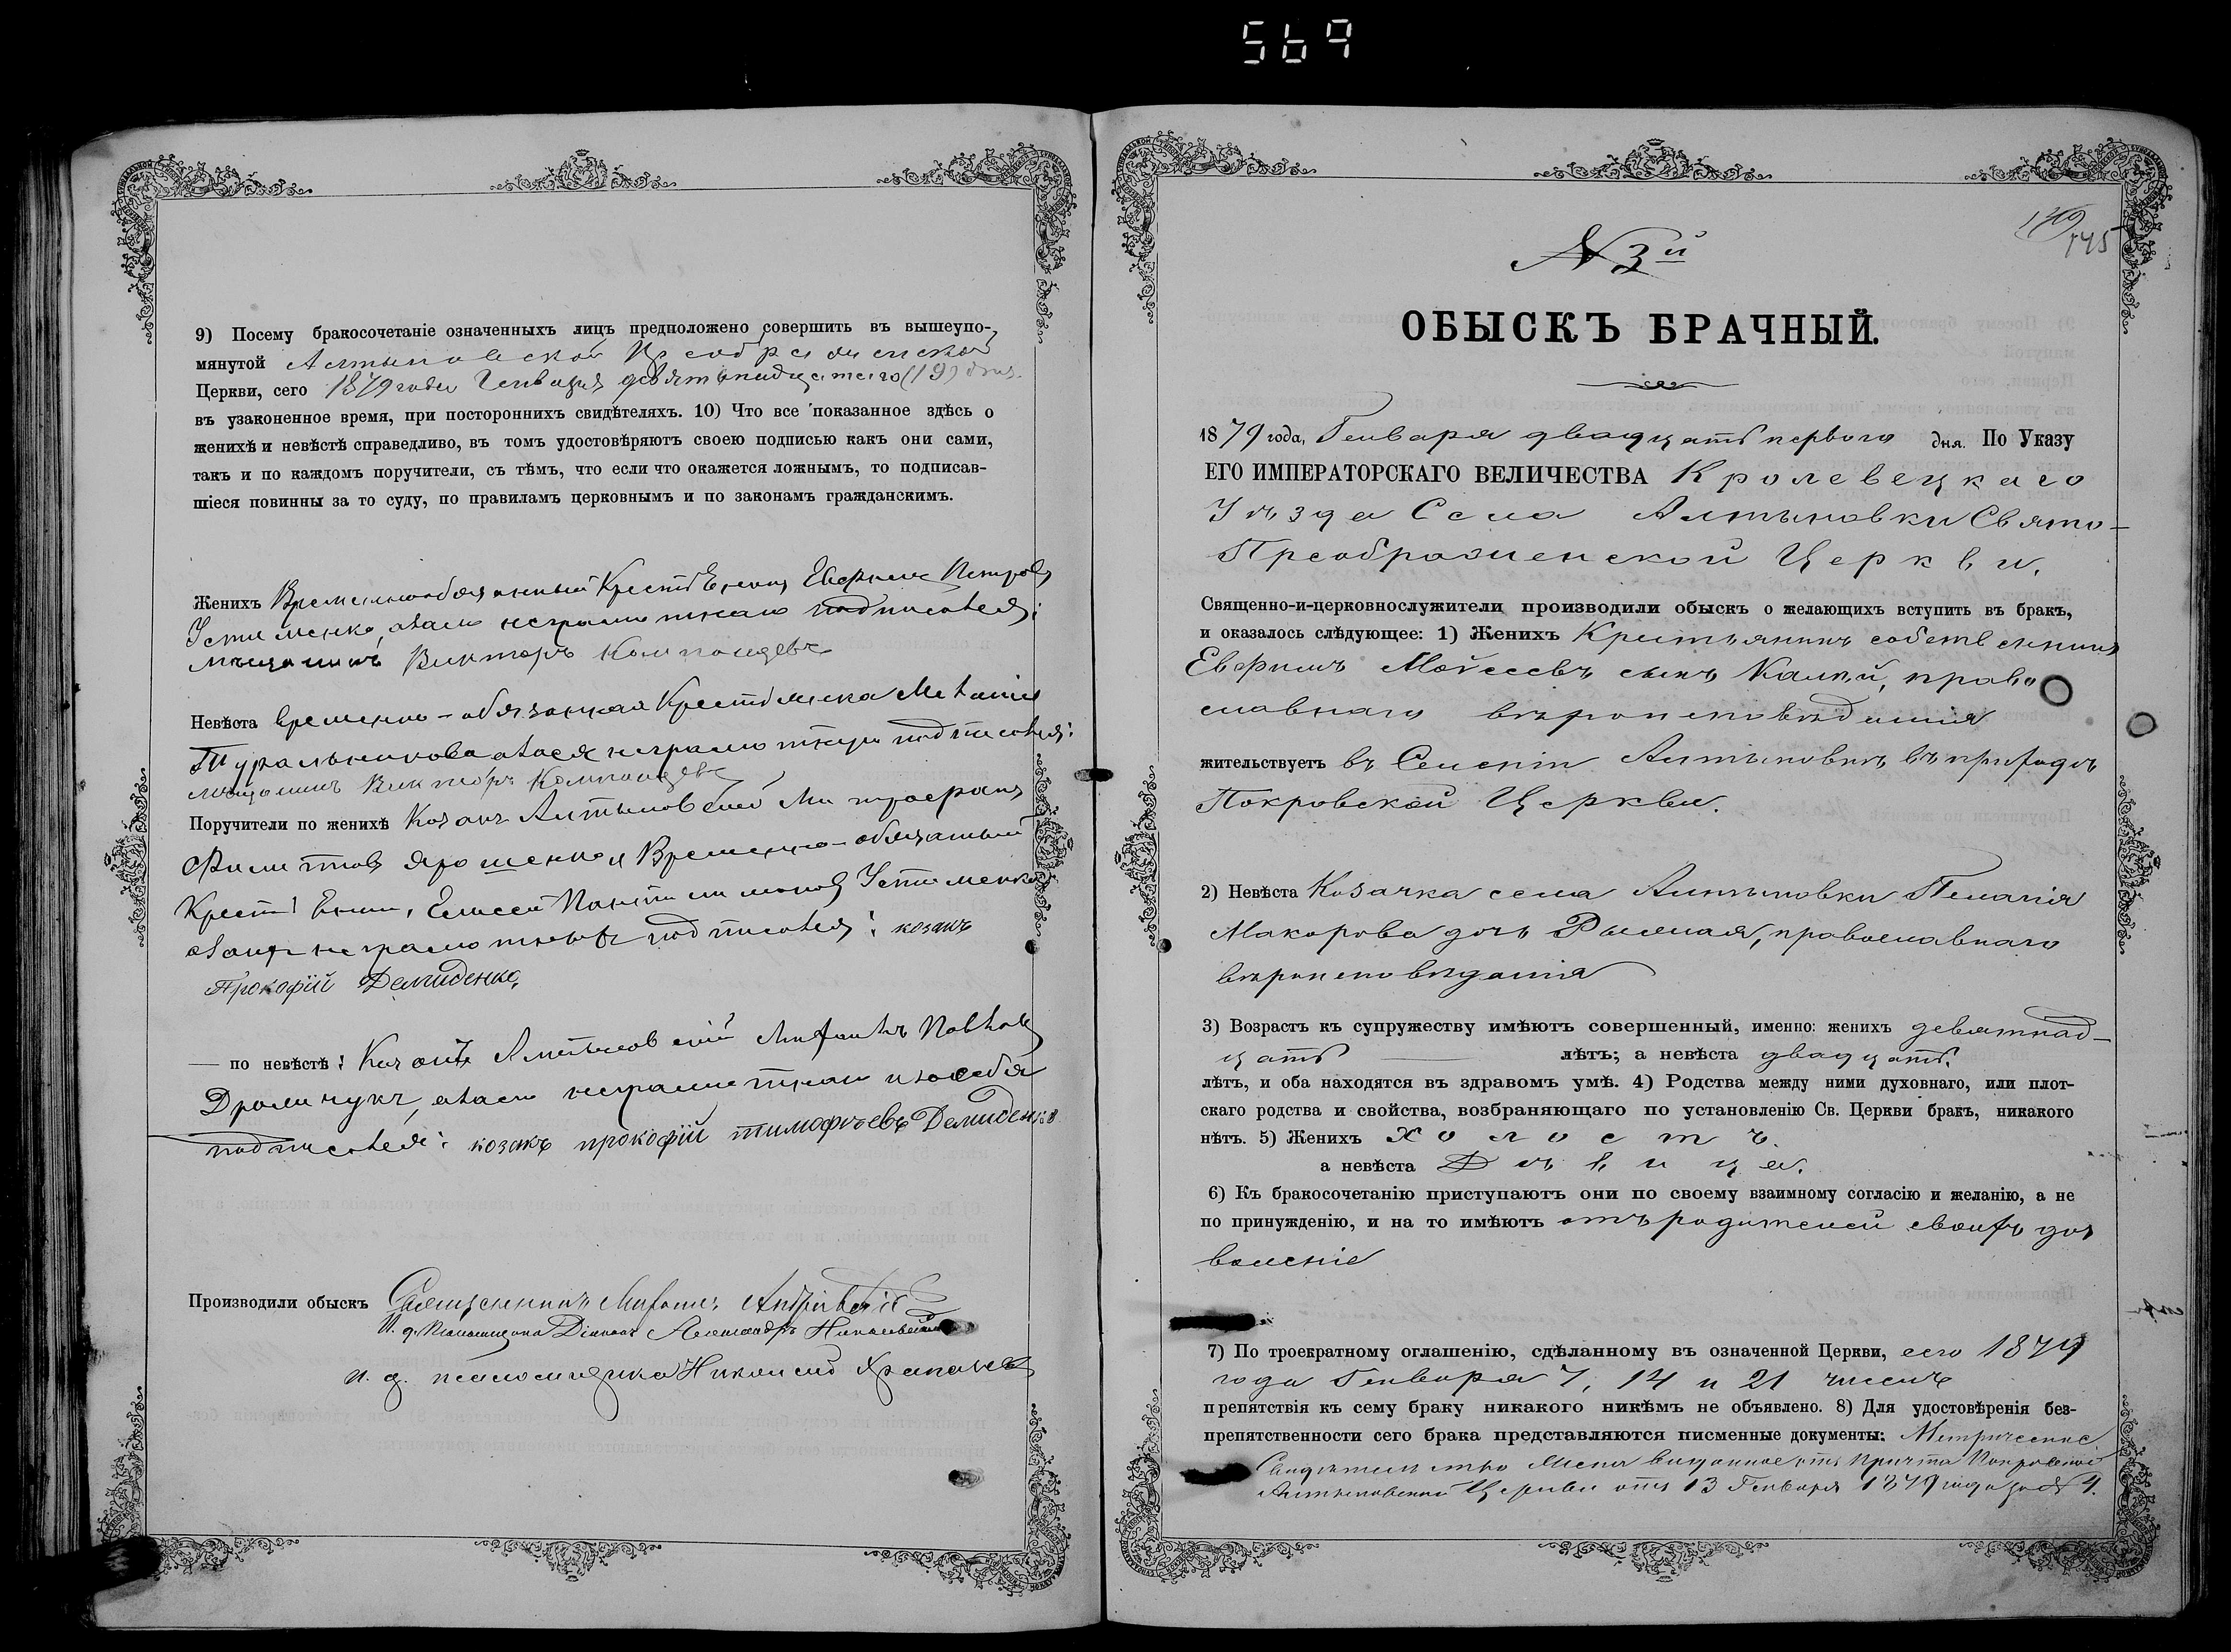 569
9) Посему бракосочетаніе означенныхъ лицъ предположено совершить въ вышеупо-
мянутой Алтыновской Преображенской
Церкви, сего 1879 года Генваря девятьнадцатаго (19) дня.
въ узаконенное время, при постороннихъ свидѣтеляхъ. 10) Что все показанное здѣсь о
женихѣ и невѣстѣ справедливо, въ томъ удостовѣряютъ своею подписью какъ они сами,
такъ и по каждомъ поручители, съ тѣмъ, что если что окажется ложнымъ, то подписав-
шіеся повинны за то суду, по правиламъ церковнымъ и по законамъ гражданскимъ.
Женихъ Временнообязанный Крестьянинъ Евфимъ Петровъ
Устименко, а за неграмотнаго подписался:
мѣщанинъ Викторъ Компанцевъ
Невѣста временно-обязанная Крестьянка
подписался:
мѣщанинъ Викторъ Компанцевъ
Поручители по женихѣ Козакъ Алтыновскій Митрофанъ
Филиповъ Ярошенко и Временно-обязанный
Елисей Пантелимоновъ Устименко
а за ихъ неграмотныхъ подписался: козакъ
Прокофій Демиденко,
— по невѣстѣ: Козакъ Алтыновскій Михаилъ Павловъ
неграмотнаго и за себя
подписался: козакъ прокофій тимофѣевъ Демиденко
Производили обыскъ Священникъ Михаилъ
И. д. Псаломщика Діаконъ Александръ
и. д. псаломщика Николай
139
145
N 3й
ОБЫСКЪ БРАЧНЫЙ.
1879 года, Генваря двадцать перваго дня. По Указу
ЕГО ИМПЕРАТОРСКАГО ВЕЛИЧЕСТВА Кролевецкаго
Уѣзда Села Алтыновки Свято-
Преображенской Церкви.
Священно-и-церковнослужители производили обыскъ о желающихъ вступить въ бракъ,
и оказалось слѣдующее: 1) Женихъ Крестьянинъ собственникъ
Евфимъ Мойсеевъ сынъ Калпій, право
славнаго вѣроисповѣданія
жительствуетъ въ Селеніи Алтыновкѣ въ приходѣ
Покровской Церкви.
2) Невѣста Козачка села Алтыновки Пелагія
Макарова дочь православнаго
вѣроисповѣданія
3) Возрастъ къ супружеству имѣютъ совершенный, именно: женихъ девятнад-
цать — лѣтъ; а невѣста двадцать.
лѣтъ, и оба находятся въ здравомъ умѣ. 4) Родства между ними духовнаго, или плот-
скаго родства и свойства, возбраняющаго по установленію Св. Церкви бракъ, никакого
нѣтъ. 5) Женихъ холостъ.
а невѣста Дѣвица.
6) Къ бракосочетанію приступаютъ они по своему взаимному согласію и желанію, а не
по принужденію, и на то имѣютъ отъ родителей своихъ доз
воленіе
7) По троекратному оглашенію, сдѣланному въ означенной Церкви, сего 1879
года Генваря 7, 14 и 21 числъ
препятствія къ сему браку никакого никѣмъ не объявлено. 8) Для удостовѣренія без-
препятственности сего брака представляются писменные документы: Метрическое
Свидѣтельство выданное отъ Причта Покровской
Алтыновской Церкви отъ 13 Генваря 1879 года за N 4.